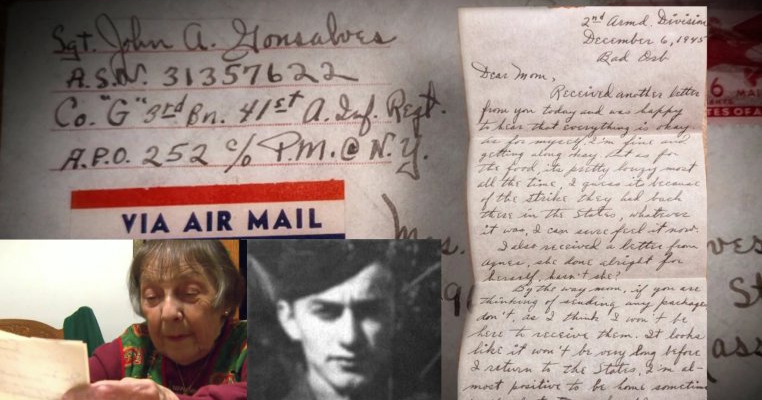 Sgt. John A. Gonsalves
A.S.N. 31357622
Co. "G" 3rd Bn. 41st A. Inf. Regt.
A.P.O. 252 c/o P.M. @ N.Y.
VIA AIR MAIL
Mrs.
ves
St
ass
6
TES OF A
2nd Armd. Division
December 6, 1945
Bad Orb
Dear Mom,
Received another letter
from you today and was happy
to hear that everything is okay
as for myself, I'm fine and
getting along okay. But as for
the food its pretty lousy most
all the time, I guess it's because
of the strike they had back
there in the States, whatever
it was, I can sure feel it now.
I also received a letter from
Agnes, she done alright for
herself, hasn't she?
By the way mom, if you are
thinking of sending any packages
don't, as I think I won't be
here to receive them. It looks
like it won't be very long before
I return to the States, I'm al-
most positive to be home sometime